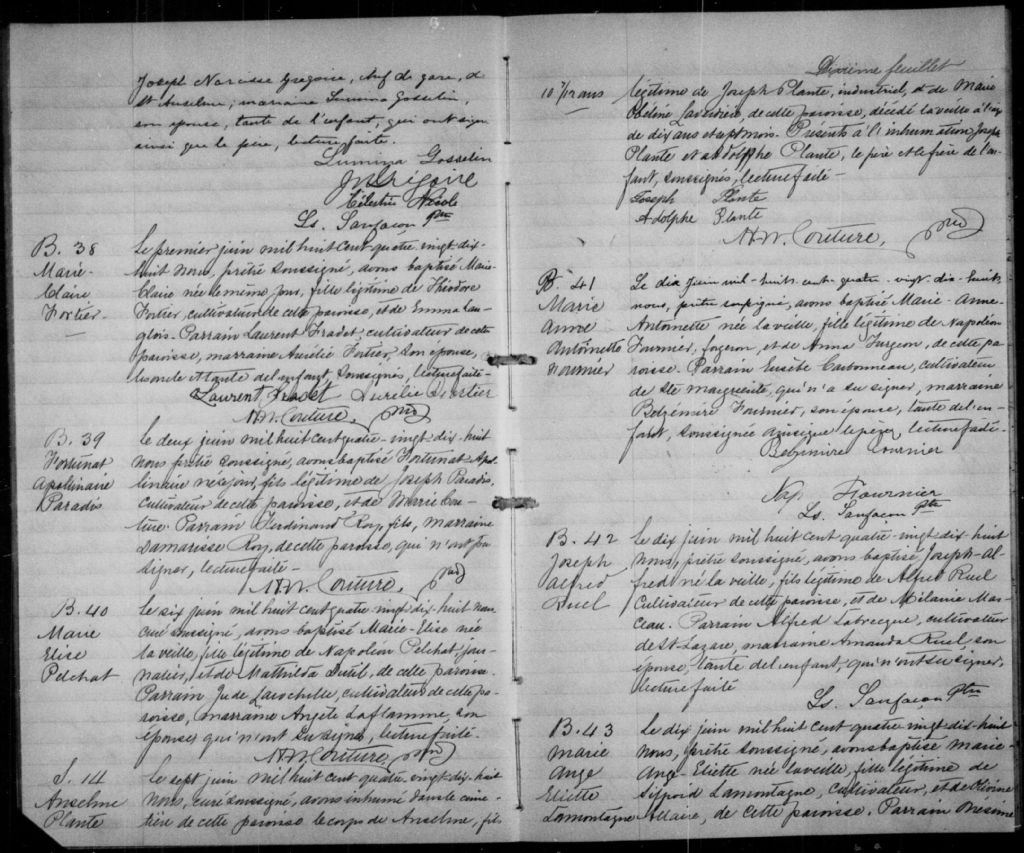 Joseph Narcisse Grégoire, chef de gare, de
St Anselme; marraine Lumina Gosselin,
son épouse, tante de l'enfant, qui ont signé
ainsi que le père, lecture faite.
Lumina Gosselin
JN Grégoire
Célestin Nicole
Ls. Sanfacon Ptre
B. 38
Marie-
Claire
Fortier.
Le premier juin mil huit cent quatre-vingt-dix-
huit nous, prêtre soussigné, avons baptisé Marie
Claire née le même jour, fille légitime de Théodore
Fortier, cultivateur de cette paroisse, et de Emma Lan-
glois. Parrain Laurent Fradet, cultivateur de cette
paroisse, marraine Aurélie Fortier, son épouse,
oncle et tante de l'enfant, soussignés, lecture faite-
Laurent Fradet Aurélie Fortier
Couture, ptre
B. 39
Fortunat
Apollinaire
Paradis
Le deux juin mil huit cent quatre-vingt-dix-huit
nous prêtre soussigné, avons baptisé Fortunat-Apol-
linaire né ce jour, fils légitime de Joseph Paradis,
cultivateur de cette paroisse, et de Marie Cou-
ture. Parrain Ferdinand Roy, fils, marraine
Damarisse Roy, de cette paroisse, qui n'ont pu
signer, lecture faite-
Couture, ptre
B. 40
Marie
Elise
Pelchat
Le six juin mil huit cent quatre-vingt-dix-huit nous
curé soussigné, avons baptisé Marie-Elise née
la veille, fille légitime de Napoléon Pelchat, jour-
nalier, et de Mathilda Dutil, de cette paroisse.
Parrain Jude Larochelle, cultivateur de cette pa-
roisse, marraine Angèle Laflamme, son
épouse qui n'ont su signer, lecture faite.
Couture, ptre
S. 14
Anselme
Plante
Le sept juin mil huit cent quatre-vingt-dix-huit
nous, curé soussigné, avons inhumé dans le cime-
tière de cette paroisse le corps de Anselme, fils
Dixième feuillet
10 7/12 ans
légitime de Joseph Plante, industriel, et de Marie
Obéline Laverdière, de cette paroisse, décédé la veille à l'âge
de dix ans et sept mois. Présents à l'inhumation Joseph
Plante et Adolphe Plante, le père et le frère de l'en-
fant, soussignés, lecture faite-
Joseph Plante
Adolphe Plante
Couture, ptre
B. 41
Marie
Anne
Antoinette
Fournier
Le dix juin mil-huit-cent-quatre-vingt-dix-huit
nous, prêtre soussigné, avons baptisé Marie-Anne-
Antoinette née la veille, fille légitime de Napoléon
Fournier, forgeron, et de Anna Turgeon, de cette pa-
roisse. Parrain Eusèbe Carbonneau, cultivateur
de Ste Marguerite, qui n'a su signer, marraine
Belzémire Fournier, son épouse, tante de l'en-
fant, soussignée ainsi que le père, lecture faite.
Belzimire Fournier
Nap Fournier
Ls. Sanfacon Ptre
B. 42
Joseph
Alfred
Ruel
Le dix juin mil huit cent quatre-vingt-dix-huit
nous, prêtre soussigné, avons baptisé Joseph-Al-
fred né la veille, fils légitime de Alfred Ruel
cultivateur de cette paroisse, et de Mélanie Mar-
ceau. Parrain Alfred Labrecque, cultivateur
de St Lazare, marraine Amanda Ruel, son
épouse, tante de l'enfant, qui n'ont su signer,
lecture faite
Ls. Sanfacon Ptre
B. 43
Marie
Ange
Eliette
Lamontagne
Le dix juin mil huit cent quatre-vingt-dix-huit
nous, prêtre soussigné, avons baptisé Marie-
Ange-Eliette née la veille, fille légitime de
Sifroid Lamontagne, cultivateur, et de Olivine
Allaire, de cette paroisse. Parrain Onésime